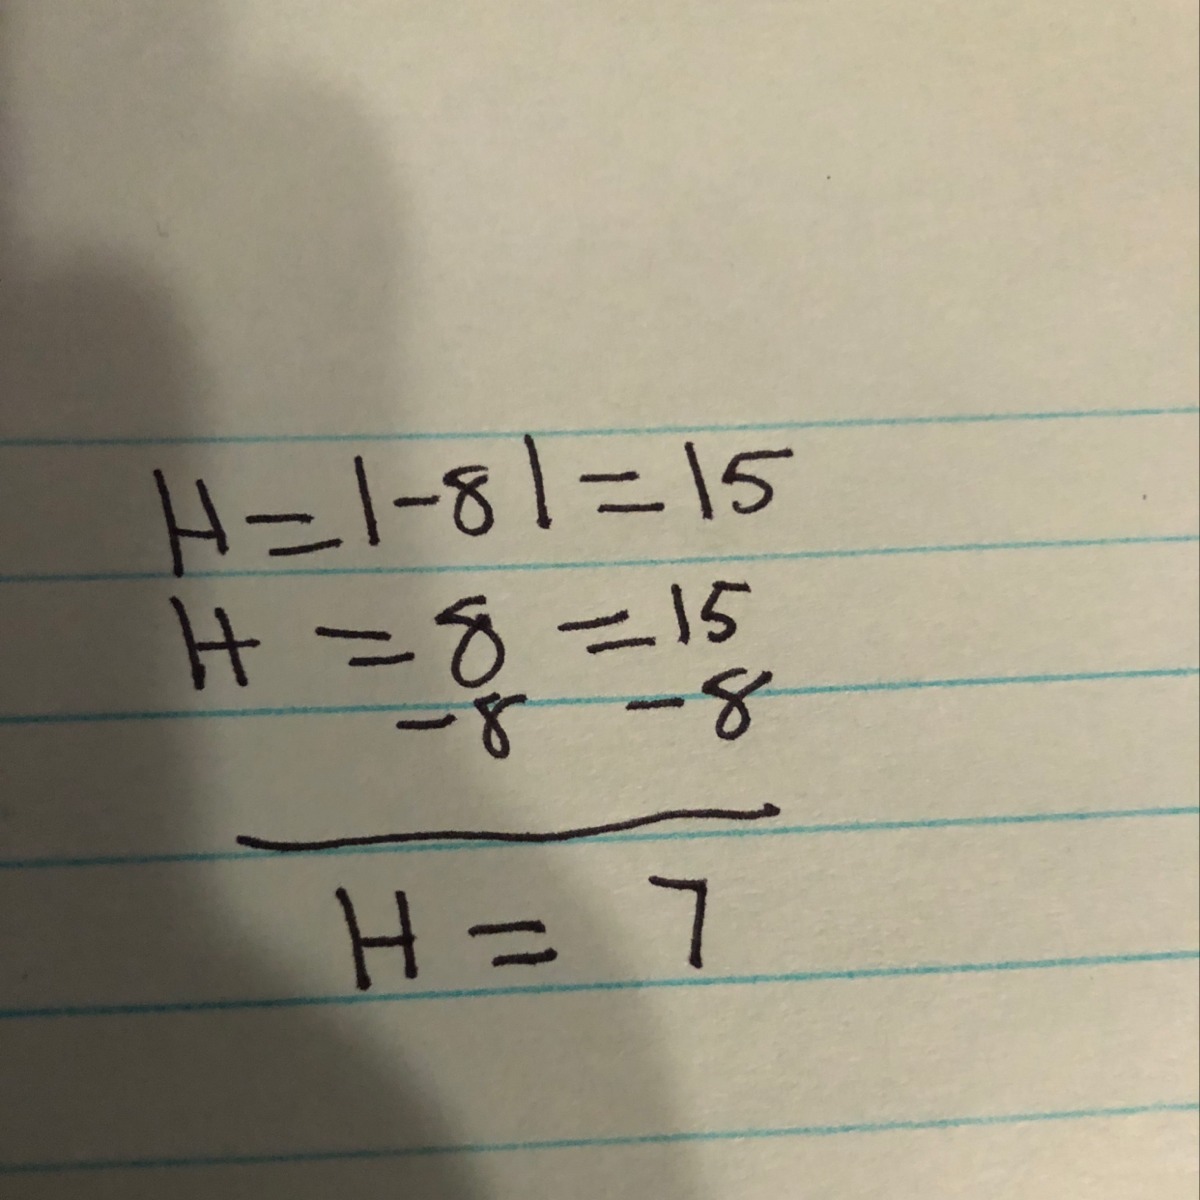 H=|-8|=15
H = 8 =15
-8 -8
H = 7